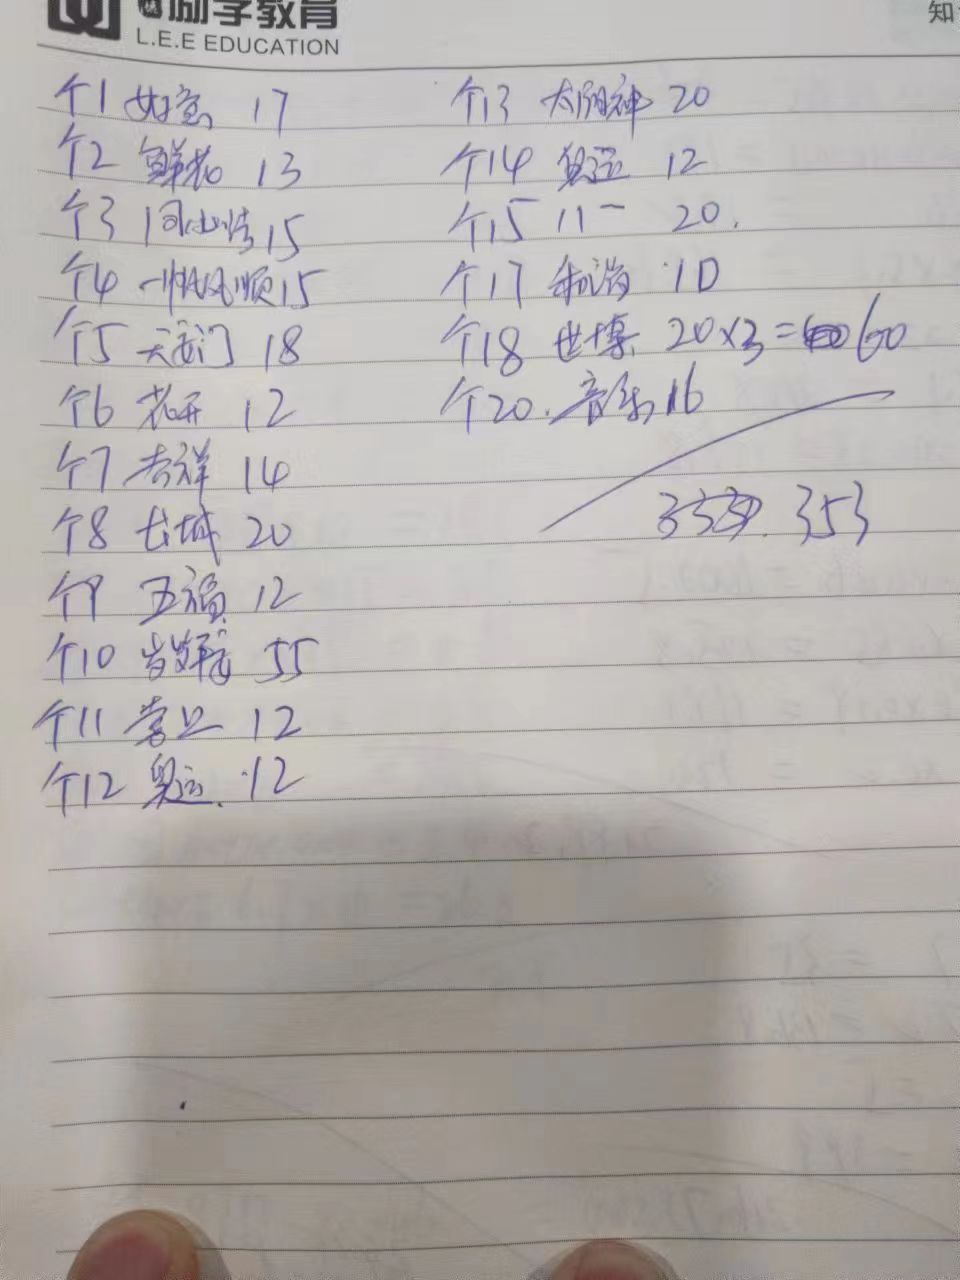 励学教育
L.E.E EDUCATION
知
个1 如意 17
个2 鲜花 13
个3 同心结 15
个4 一帆风顺 15
个5 天安门 18
个6 花开 12
个7 吉祥 14
个8 长城 20
个9 五福 12
个10 55
个11 12
个12 奥运 12
个13 太阳神 20
个14 奥运 12
个15 11一 20.
个17 和谐 10
个18 世博 20×3=60
个20. 音乐 16
353